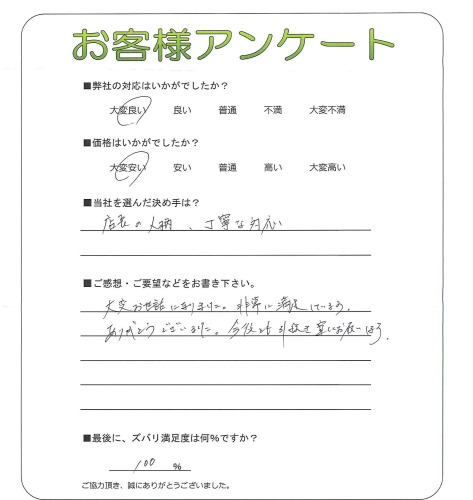 お客様アンケート
■弊社の対応はいかがでしたか？
大変良い 良い 普通 不満 大変不満
■価格はいかがでしたか？
大変安い 安い 普通 高い 大変高い
■当社を選んだ決め手は？
店長の人柄、丁寧な対応
■ご感想・ご要望などをお書き下さい。
大変お世話になりました。非常に満足しています。
ありがとうございました。今後とも引続き宜しくお願いします。
■最後に、ズバリ満足度は何%ですか？
100 %
ご協力頂き、誠にありがとうございました。